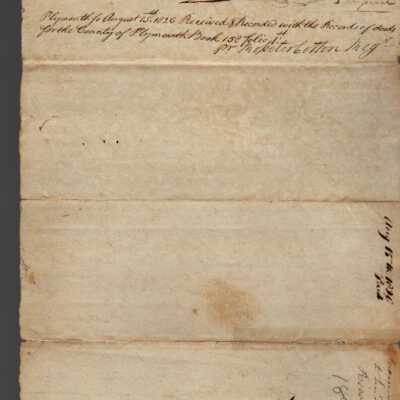 Plymouth ss August 15th 1826 Received & Recorded with the Records of deeds
for the County of Plymouth Book 158 folio 1st
Pr Rossiter Cotton Regr
Aug 15th 1826